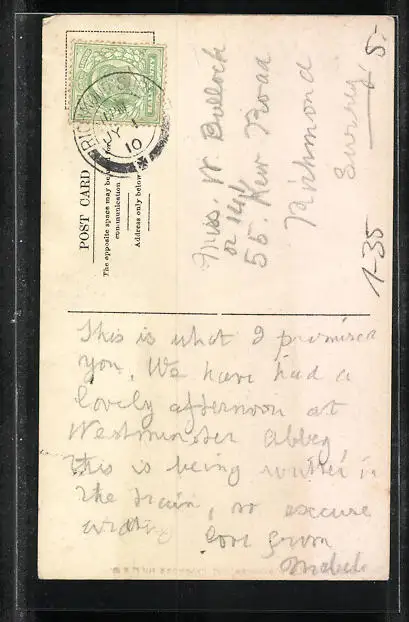 POST CARD
The opposite space may be used for
communication
Address only below
RICHMOND S.
JY 1
10
Miss. W. Bullock
55. Kew Road
Richmond
Surrey
5.-
1-35
This is what I promised
you. We have had a
lovely afternoon at
Westminster Abbey
this is being written in
the train, so excuse
writing love from
Mabel